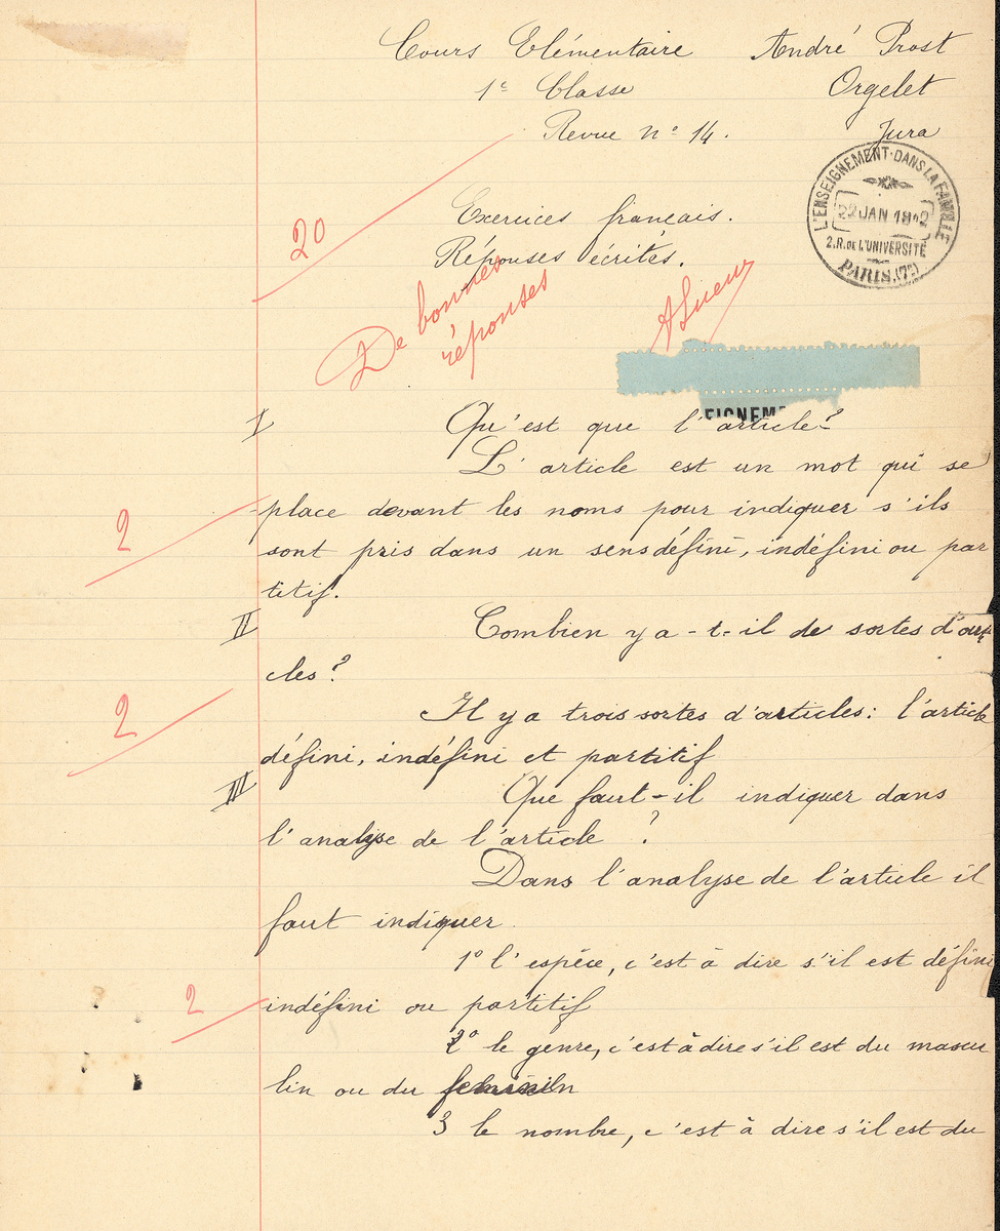 Cours Elémentaire André Prost
1e Classe Orgelet
Revue n° 14. Jura
L'ENSEIGNEMENT DANS LA FAMILLE
22 JAN
2.R. DE L'UNIVERSITÉ
PARIS.(7e)
20
Exercices français.
Réponses écrites.
De bonnes
réponses
EIGNEM
I Qu'est que l'article?
L'article est un mot qui se
place devant les noms pour indiquer s'ils
2
sont pris dans un sens défini, indéfini ou par
titif.
II Combien y a-t-il de sortes d'arti
cles?
2
Il y a trois sortes d'articles: l'article
défini, indéfini et partitif
III Que faut-il indiquer dans
l'analyse de l'article ?
Dans l'analyse de l'article il
faut indiquer
1° l'espèce, c'est à dire s'il est défini
2
indéfini ou partitif
2° le genre, c'est à dire s'il est du mascu
lin ou du
3 le nombre, c'est à dire s'il est du